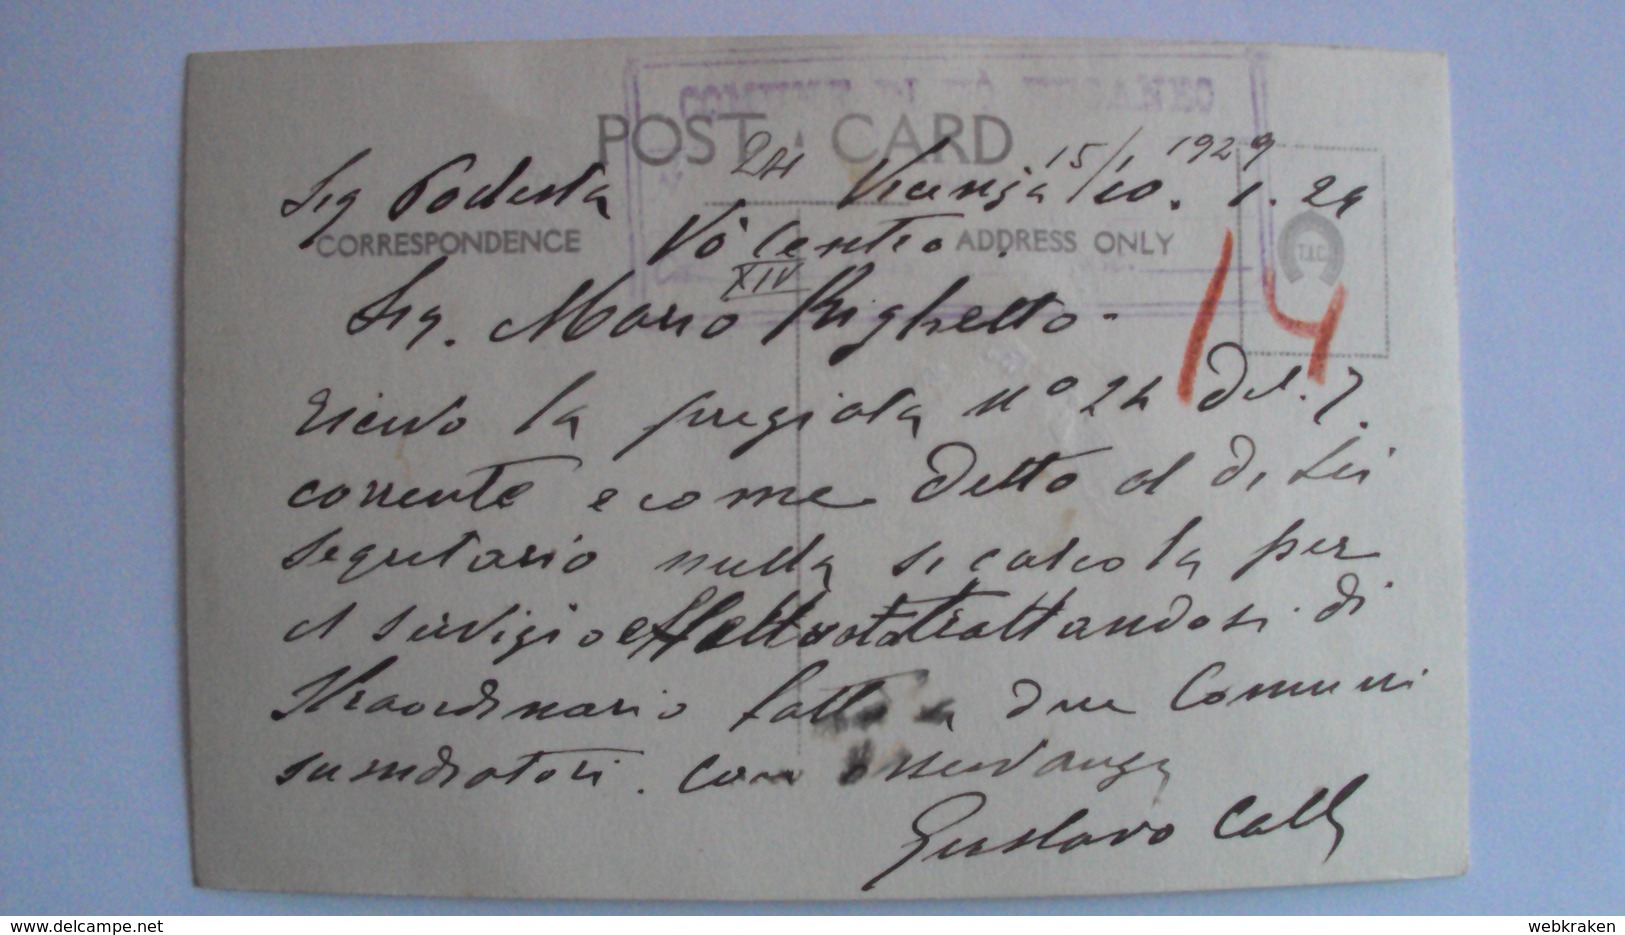 COMUNE DI VÒ EUGANEO
POST CARD
24 15/1 1929
Sig Podesta Vicenza 10. 1. 29
CORRESPONDENCE Vò Centro. ADDRESS ONLY
T.I.C.
XIV
14
Sig. Mario Righetto -
ricevo la pregiata Nº 24 del. 7.
corrente e come detto al di Lei
segretario nulla si calcola per
il servizio effettuato trattandosi di
straordinario fatto a due Comuni
con osservanza
Gustavo
delcampe.net
webkraken